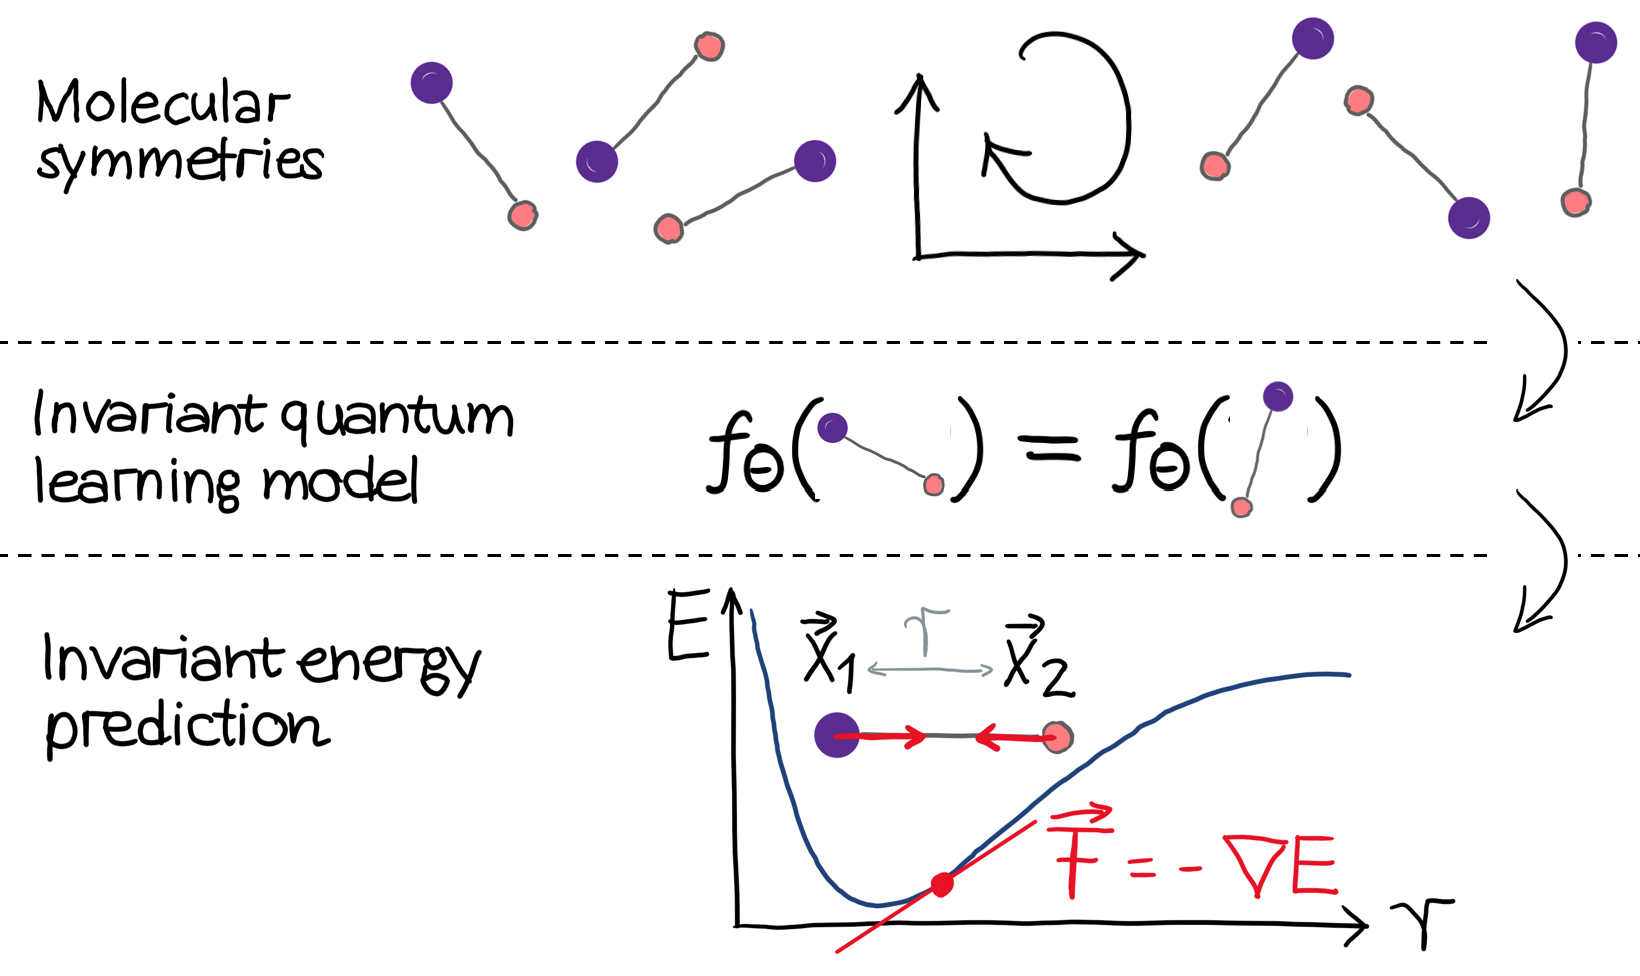 Molecular
symmetries
Invariant quantum
learning model
fΘ( ) = fΘ( )
Invariant energy
prediction
E
x⃗1 r x⃗2
F⃗ = - ∇E
r